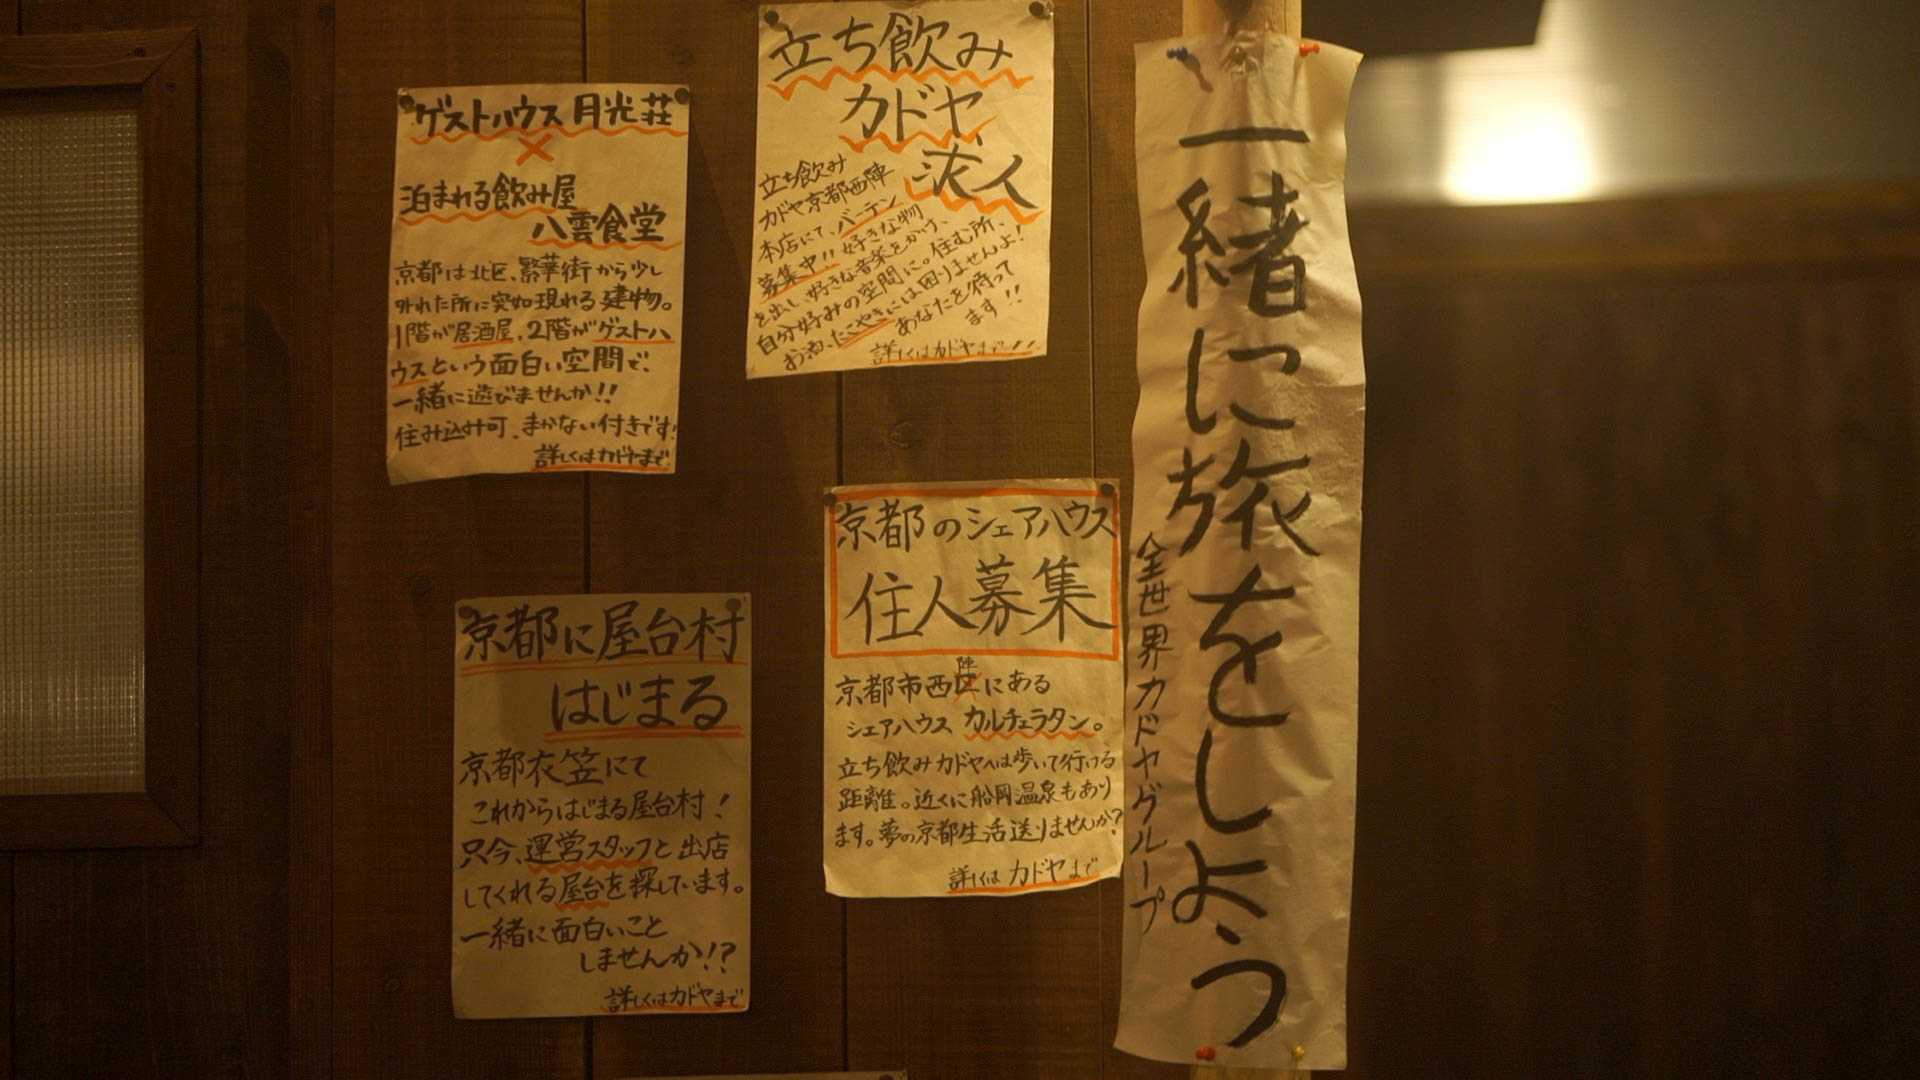 ゲストハウス月光荘
×
泊まれる飲み屋
八雲食堂
京都は北区、繁華街から少し
外れた所に突如現れる建物。
1階が居酒屋、2階がゲストハ
ウスという面白い空間で、
一緒に遊びませんか!!
住み込み可、まかない付きです!
詳しくはカドヤまで
立ち飲み
カドヤ、
求人
立ち飲み
カドヤ京都西陣
本店にて、バーテン
募集中!! 好きな物
を出し、好きな音楽をかけ、
自分好みの空間に。住む所、
お酒、たこやきには困りませんよ!
あなたを待って
ます!!
詳しくはカドヤまで!!
京都に屋台村
はじまる
京都衣笠にて
これからはじまる屋台村!
只今、運営スタッフと出店
してくれる屋台を探しています。
一緒に面白いこと
しませんか!?
詳しくはカドヤまで
京都のシェアハウス
住人募集
京都市西陣にある
シェアハウス カルチェラタン。
立ち飲みカドヤへは歩いて行ける
距離。近くに船岡温泉もあり
ます。夢の京都生活送りませんか?
詳しくはカドヤまで
一緒に旅をしよう
全世界カドヤグループ